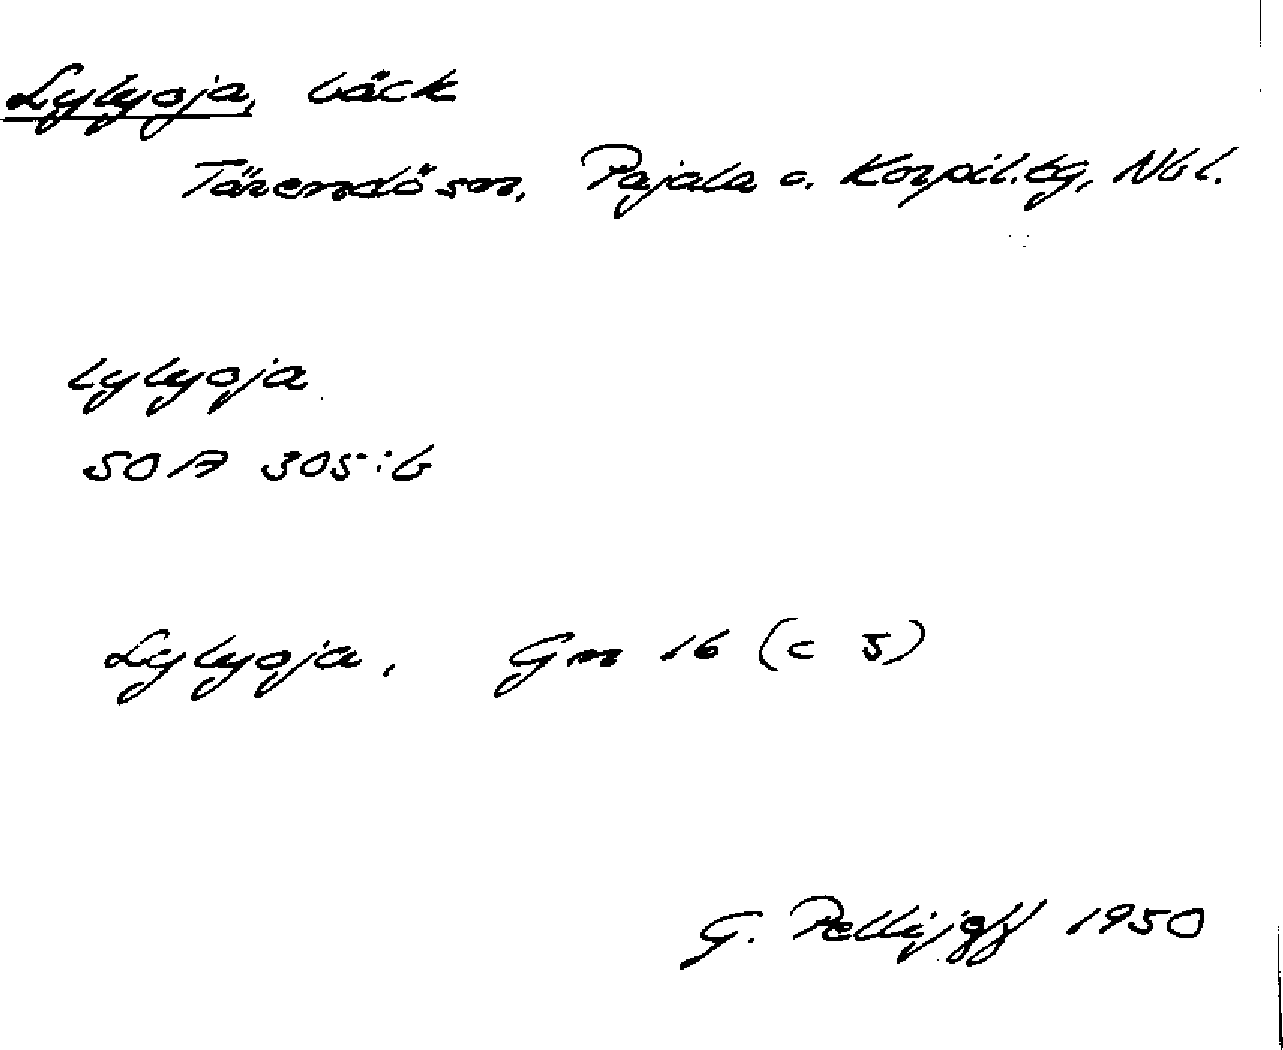 Lylyoja, bäck
Tärendö sn, Pajala o. Korpil. tg, Nbl.
lylyoja
SOA 305:b
Lylyoja, Gm 16 (c 5)
G. Pellijeff 1950